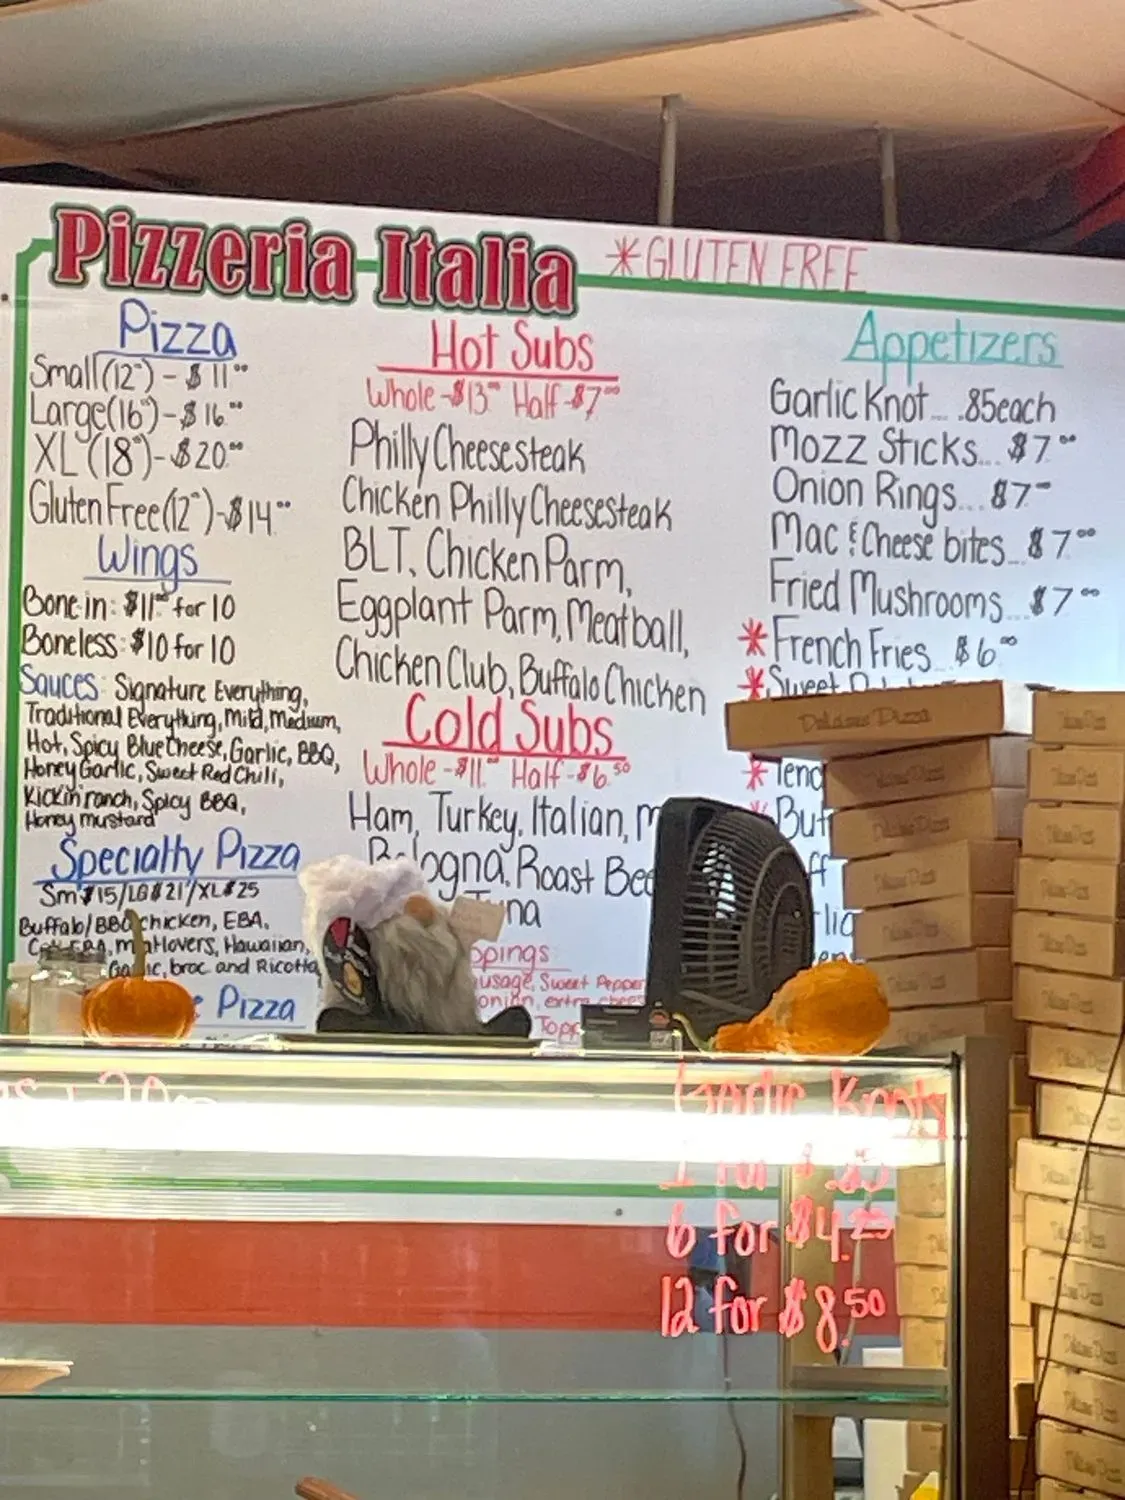 Pizzeria Italia
*GLUTEN FREE
Pizza
Small (12") - $11.00
Large (16") - $16.00
XL (18") - $20.00
Gluten Free (12") - $14.00
Wings
Bone in: $11.00 for 10
Boneless: $10 for 10
Sauces: Signature Everything,
Traditional Everything, Mild, Medium,
Hot, Spicy Blue Cheese, Garlic, BBQ,
Honey Garlic, Sweet Red Chili,
Kickin ranch, Spicy BBQ,
Honey mustard
Specialty Pizza
Sm $15/LG $21/XL $25
Buffalo/BBQ chicken, EBA,
Hawaiian,
broc and Ricotta
Pizza
Hot Subs
Whole - $13.00 Half - $7.00
Philly Cheesesteak
Chicken Philly Cheesesteak
BLT, Chicken Parm,
Eggplant Parm, Meatball,
Chicken Club, Buffalo Chicken
Cold Subs
Whole - $11.00 Half - $6.50
Ham, Turkey, Italian,
Bologna, Roast
Sweet
onion, extra
Appetizers
Garlic Knot... .85 each
Mozz Sticks... $7.00
Onion Rings... $7.00
Mac & Cheese bites... $7.00
Fried Mushrooms... $7.00
*French Fries... $6.00
*Sweet
Garlic Knots
1 for $.85
6 for $4.25
12 for $8.50
Delicious Pizza